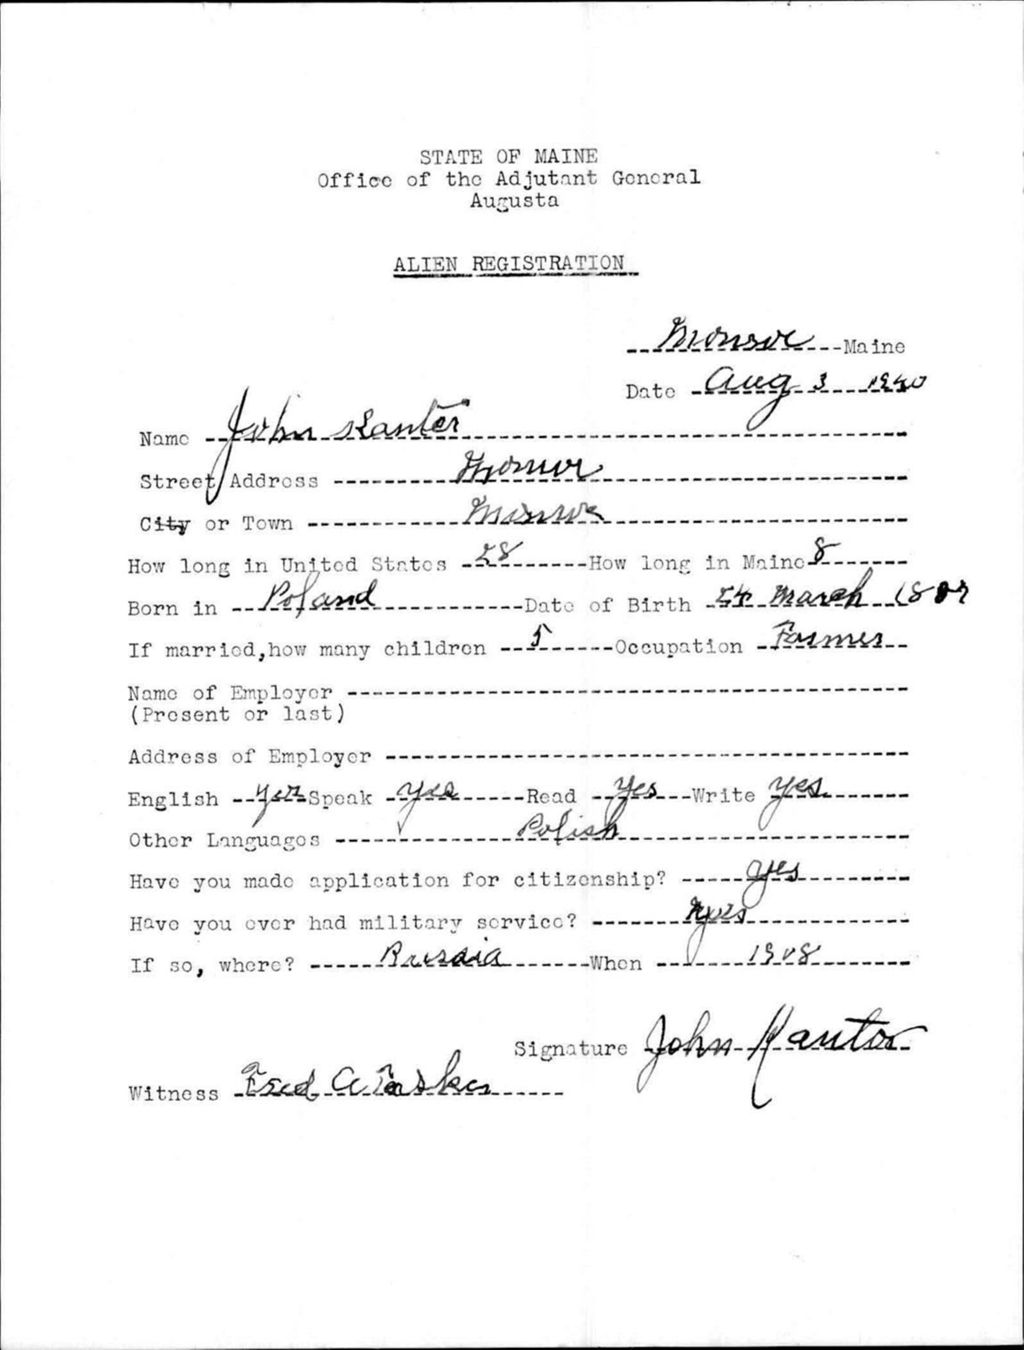 STATE OF MAINE
Office of the Adjutant General
Augusta
ALIEN REGISTRATION
Monroe Maine
Date Aug 3 1940
Name John Kanter
Street Address Monroe
City or Town Monroe
How long in United States 28 How long in Maine 8
Born in Poland Date of Birth 24 March
If married, how many children 5 Occupation Farmer
Name of Employer
(Present or last)
Address of Employer
English yes Speak yes Read yes Write yes
Other Languages Polish
Have you made application for citizenship? yes
Have you ever had military service? yes
If so, where? Russia When 1908
Signature John Kantor
Witness Fred A Tasker